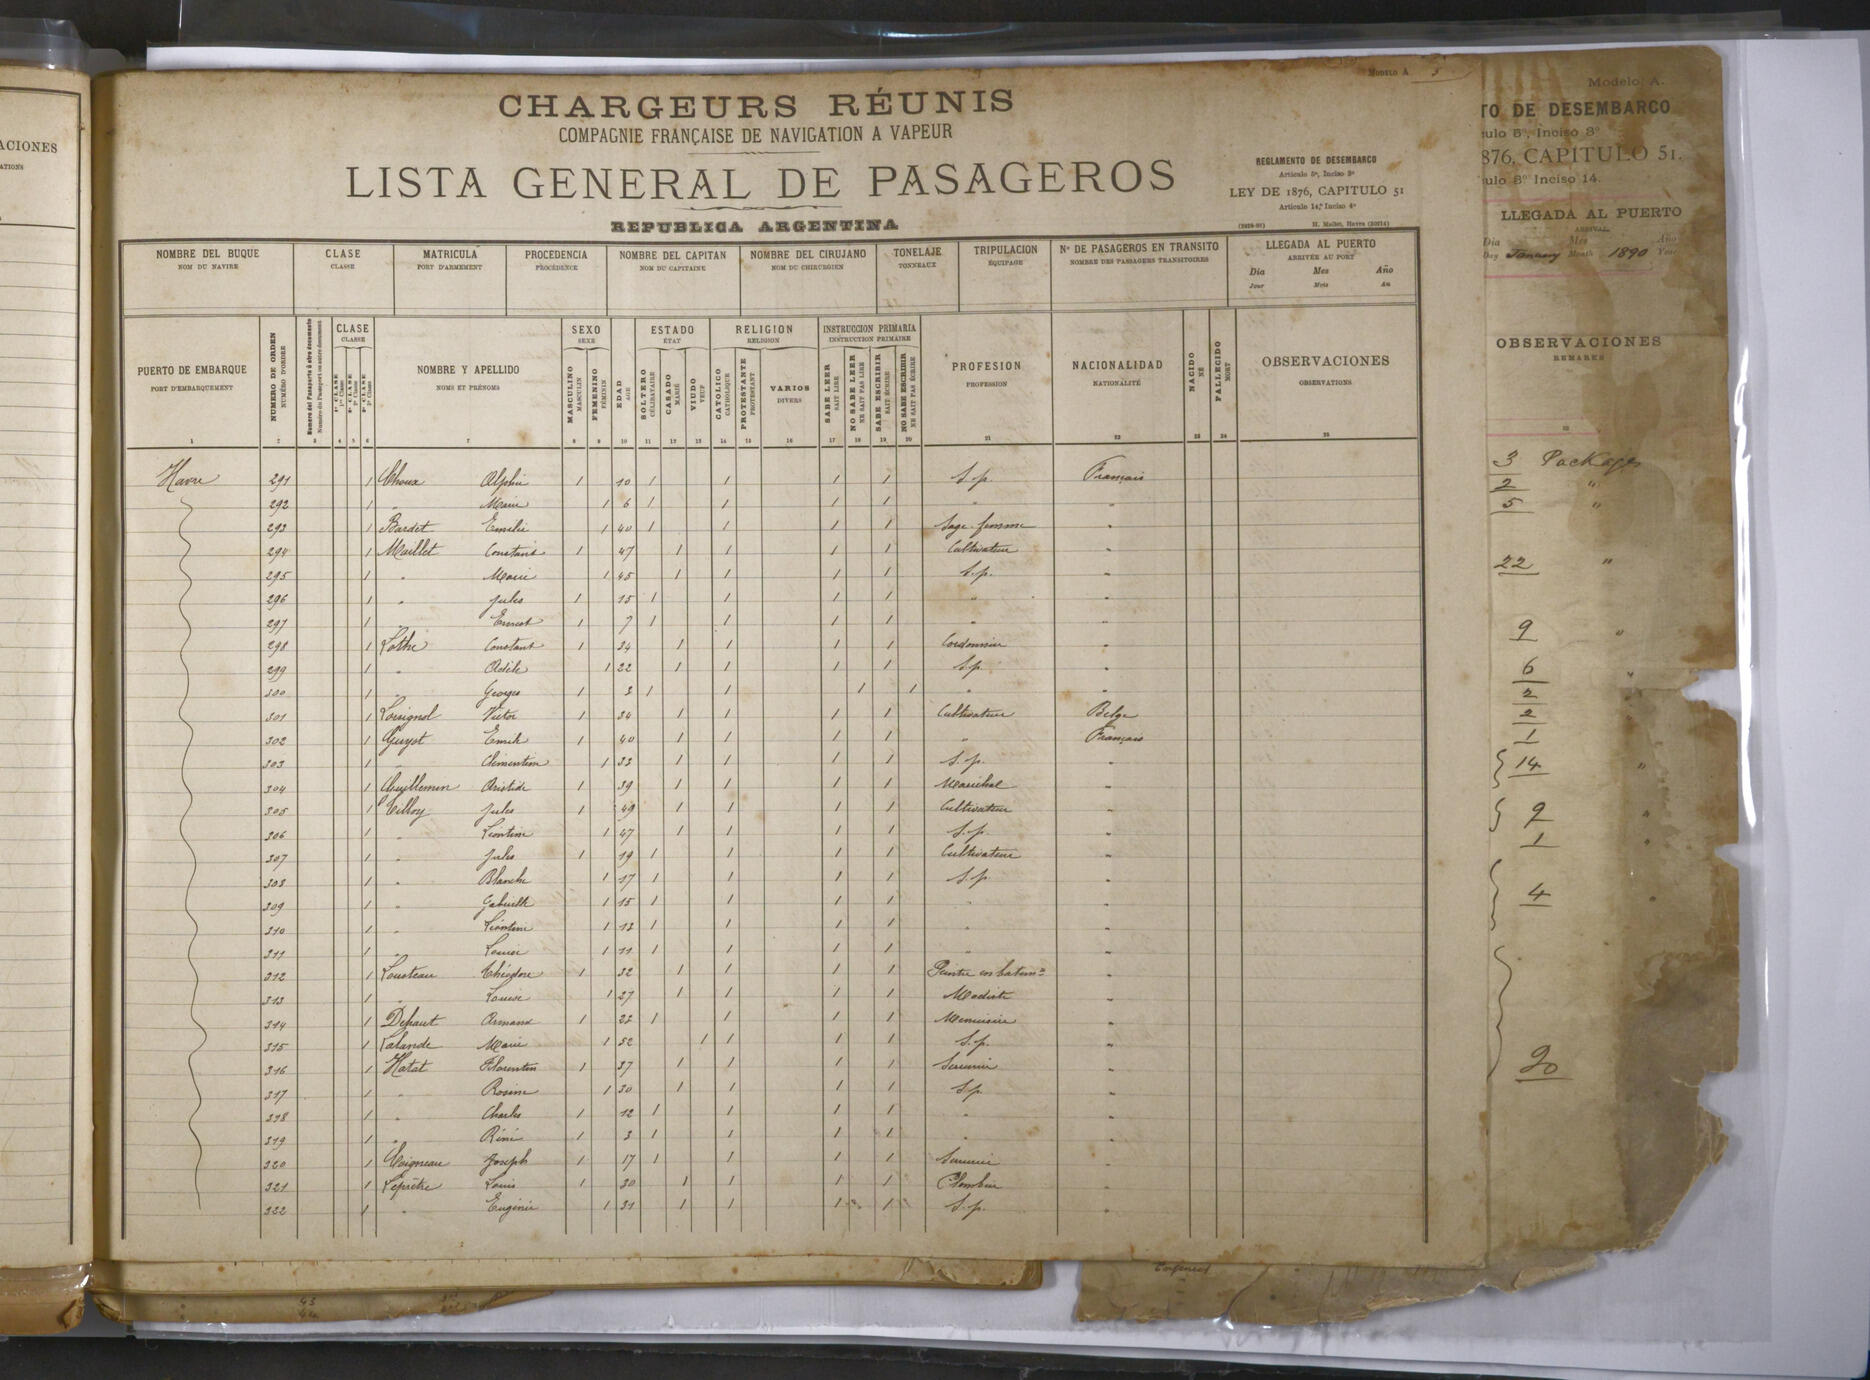 ACIONES
ATIONS
MODELO A 3
CHARGEURS RÉUNIS
COMPAGNIE FRANÇAISE DE NAVIGATION A VAPEUR
LISTA GENERAL DE PASAGEROS
REPUBLICA ARGENTINA
REGLAMENTO DE DESEMBARCO
Articulo 5º, Inciso 3º
LEY DE 1876, CAPITULO 51
Articulo 14º, Inciso 4º
H. Mallet, Havre (20214)
NOMBRE DEL BUQUE CLASE MATRICULA PROCEDENCIA NOMBRE DEL CAPITAN NOMBRE DEL CIRUJANO TONELAJE TRIPULACION Nº DE PASAGEROS EN TRANSITO LLEGADA AL PUERTO
NOM DU NAVIRE CLASSE PORT D'ARMEMENT PROCÉDENCE NOM DU CAPITAINE NOM DU CHIRURGIEN TONNEAUX ÉQUIPAGE NOMBRE DES PASSAGERS TRANSITOIRES ARRIVÉE AU PORT
Dia Mes Año
Jour Mois An
PUERTO DE EMBARQUE
PORT D'EMBARQUEMENT
NUMERO DE ORDEN
NUMÉRO D'ORDRE
Numero del Pasaporte ú otro documento
Numéro du Passeport ou autre document
CLASE
CLASSE
1ª CLASE
1re Classe
2ª CLASE
2e Classe
3ª CLASE
3e Classe
NOMBRE Y APELLIDO
NOMS ET PRÉNOMS
SEXO
SEXE
MASCULINO
MASCULIN
FEMENINO
FÉMININ
EDAD
AGE
ESTADO
ÉTAT
SOLTERO
CÉLIBATAIRE
CASADO
MARIÉ
VIUDO
VEUF
RELIGION
RELIGION
CATOLICO
CATHOLIQUE
PROTESTANTE
PROTESTANT
VARIOS
DIVERS
INSTRUCCION PRIMARIA
INSTRUCTION PRIMAIRE
SABE LEER
SAIT LIRE
NO SABE LEER
NE SAIT PAS LIRE
SABE ESCRIBIR
SAIT ÉCRIRE
NO SABE ESCRIBIR
NE SAIT PAS ÉCRIRE
PROFESION
PROFESSION
NACIONALIDAD
NATIONALITÉ
NACIDO
NÉ
FALLECIDO
MORT
OBSERVACIONES
OBSERVATIONS
1 2 3 4 5 6 7 8 9 10 11 12 13 14 15 16 17 18 19 20 21 22 23 24 25
Havre 291 1 Choux 1 10 1 1 1 1 S.p. Français
292 1 " Marie 1 6 1 1 1 1 "
293 1 Bardet Emilie 1 40 1 1 1 1 Sage-femme "
294 1 Maillet Constant 1 47 1 1 1 1 Cultivateur "
295 1 " Marie 1 45 1 1 1 1 S.p. "
296 1 " Jules 1 15 1 1 1 1 " "
297 1 " Ernest 1 7 1 1 1 1 " "
298 1 Lothe Constant 1 34 1 1 1 1 Cordonnier "
299 1 " Adèle 1 22 1 1 1 1 S.p. "
300 1 " Georges 1 3 1 1 1 1 " "
301 1 Lorsignol Victor 1 34 1 1 1 1 Cultivateur Belge
302 1 Guyot Emile 1 40 1 1 1 1 " Français
303 1 " Clémentine 1 33 1 1 1 1 S.p. "
304 1 Guillemin Aristide 1 39 1 1 1 1 Maréchal "
305 1 Tilloy Jules 1 49 1 1 1 1 Cultivateur "
306 1 " Léontine 1 47 1 1 1 1 S.p. "
307 1 " Jules 1 19 1 1 1 1 Cultivateur "
308 1 " Blanche 1 17 1 1 1 1 S.p. "
309 1 " Gabrielle 1 15 1 1 1 1 " "
310 1 " Léontine 1 13 1 1 1 1 " "
311 1 " Louise 1 11 1 1 1 1 " "
312 1 Lousteau Théodore 1 32 1 1 1 1 Peintre en batimt "
313 1 " Louise 1 27 1 1 1 1 Modiste "
314 1 Dehaut Armand 1 22 1 1 1 1 Menuisier "
315 1 Lalande Marie 1 52 1 1 1 1 S.p. "
316 1 Hatat Florentin 1 37 1 1 1 1 Serrurier "
317 1 " Rosine 1 30 1 1 1 1 S.p. "
318 1 " Charles 1 12 1 1 1 1 " "
319 1 " Réné 1 3 1 1 1 1 " "
320 1 Coigneau Joseph 1 17 1 1 1 1 Serrurier "
321 1 Leprêtre Louis 1 30 1 1 1 1 Plombier "
322 1 " Eugénie 1 31 1 1 1 1 S.p. "
Modelo A.
TO DE DESEMBARCO
ulo 5º, Inciso 3º
876, CAPITULO 51.
ulo 3º Inciso 14.
LLEGADA AL PUERTO
ARRIVAL
Dia Mes Año
Day January Month 1890 Year
OBSERVACIONES
REMARKS
3 Packages
2 "
5 "
22 "
9 "
6 "
2
2 "
1
14 "
9 "
1 "
4 "
20